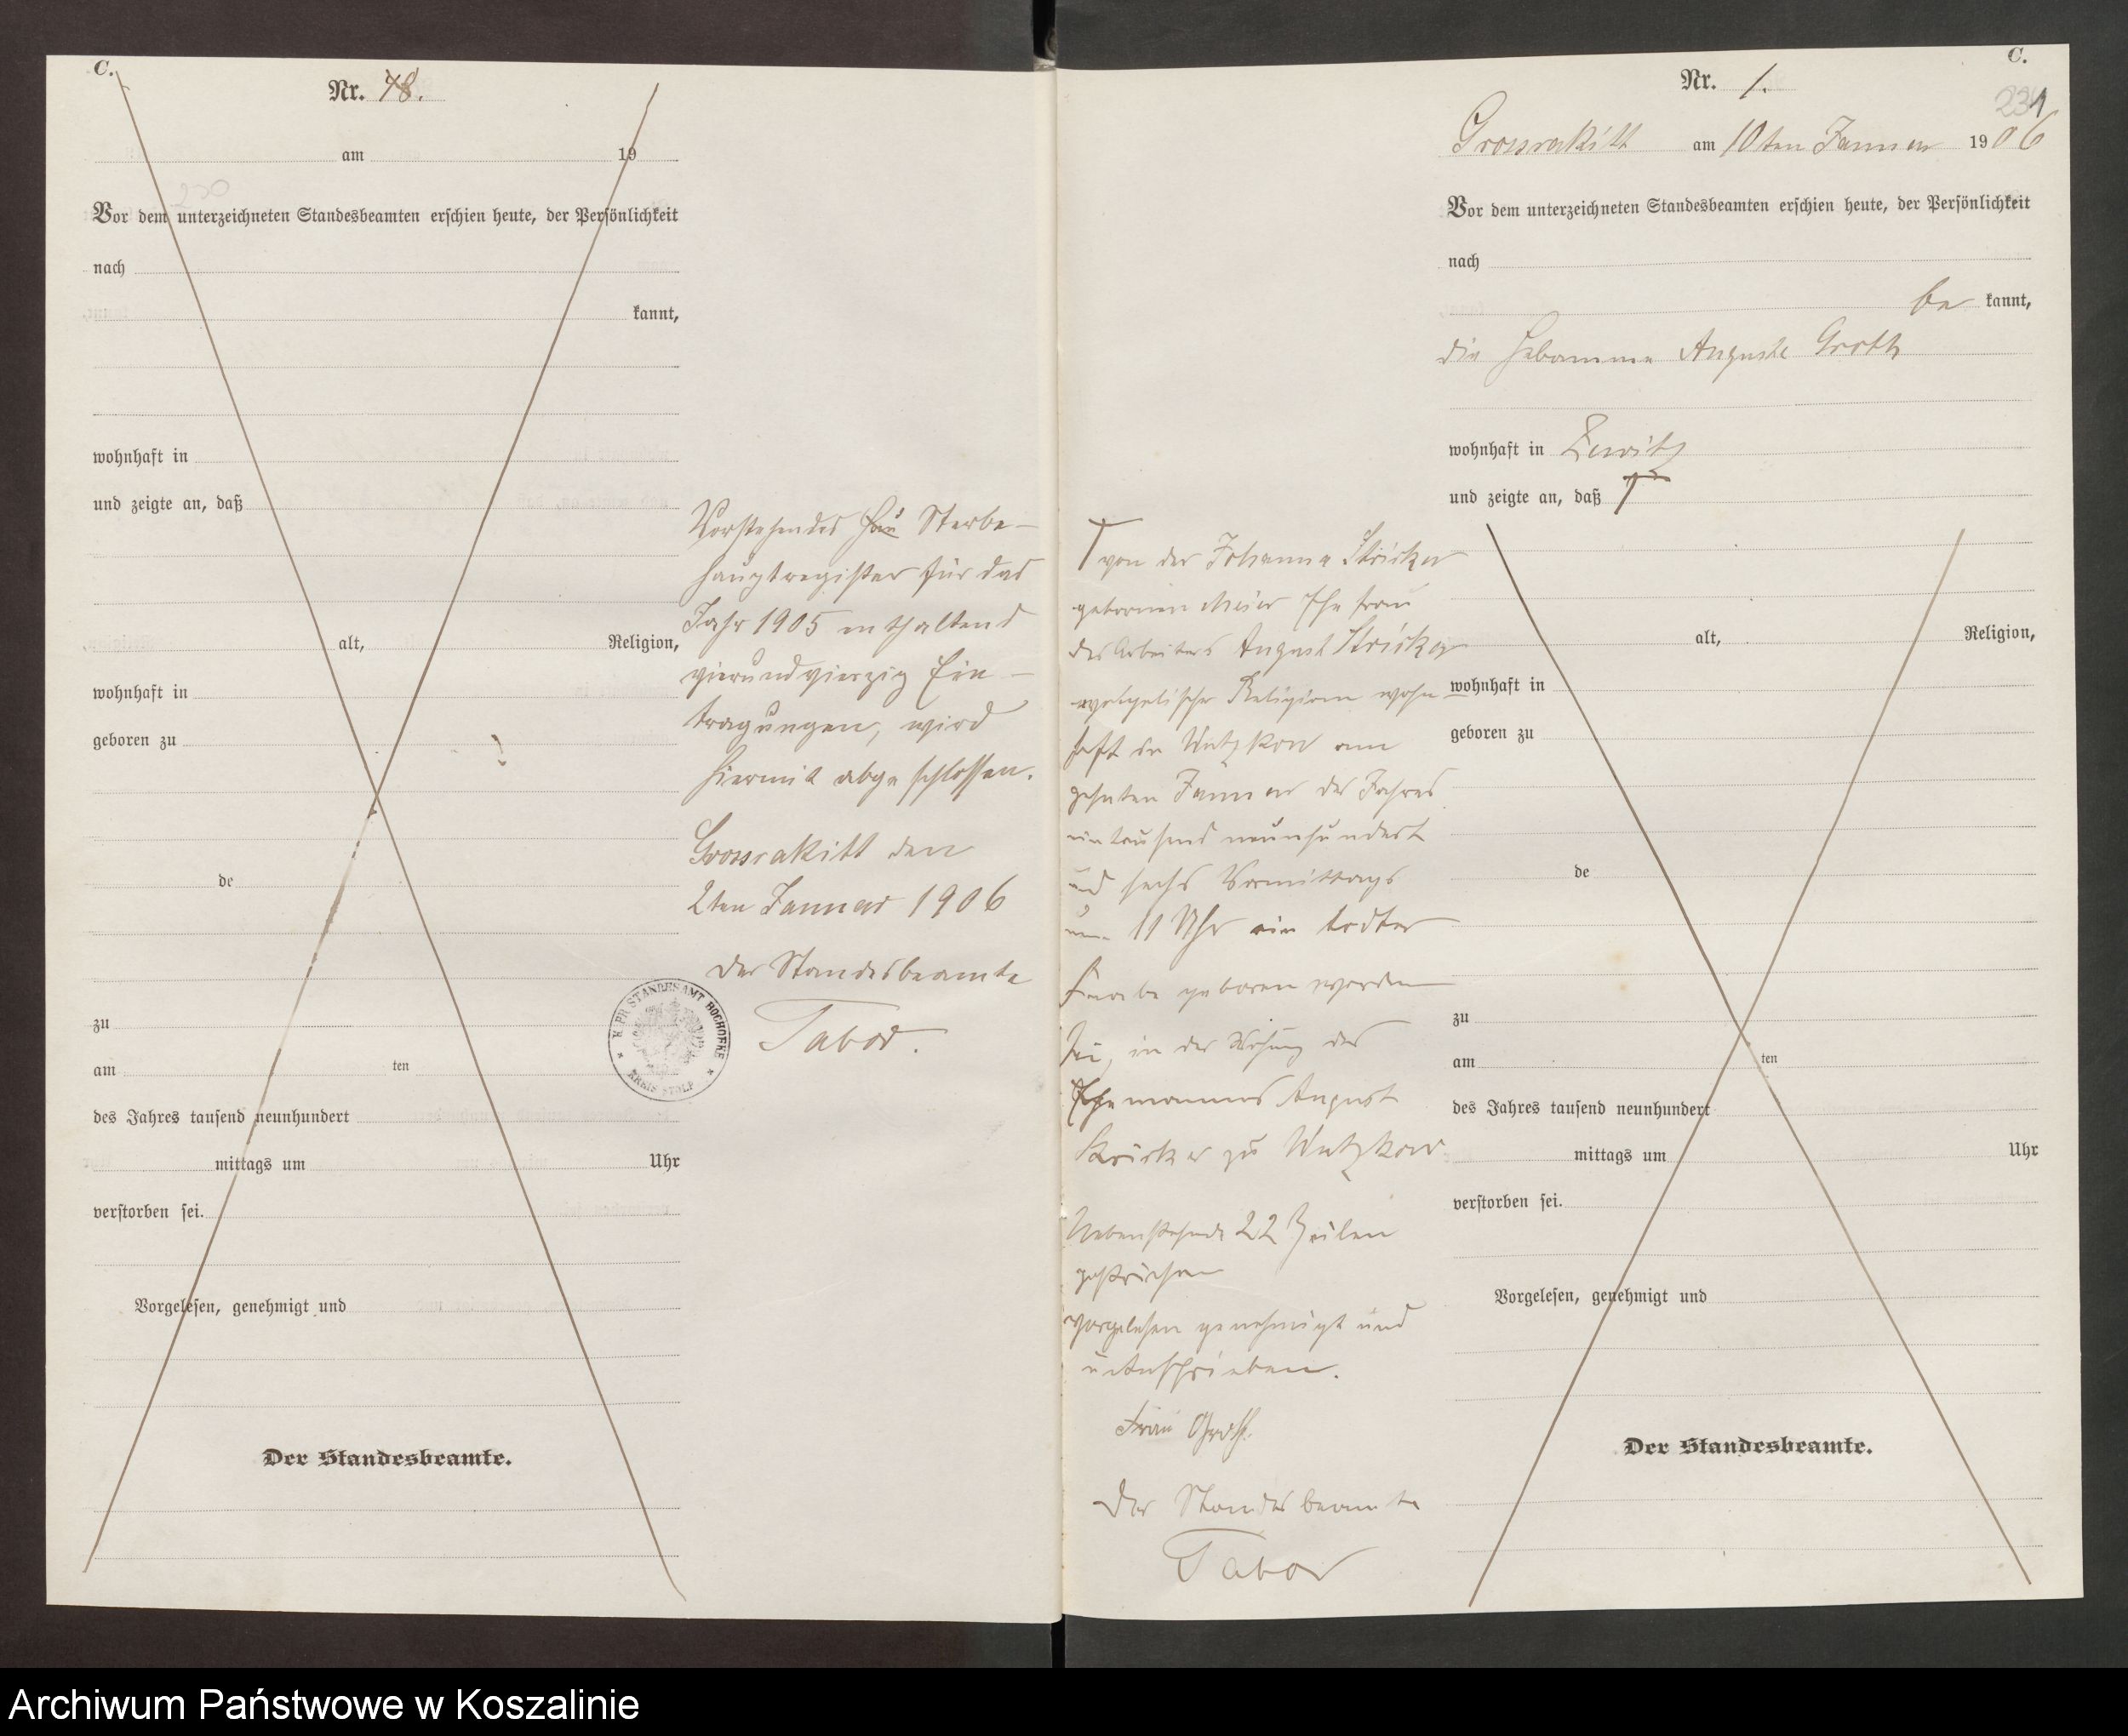 C.
Nr. 48.
am 19
Vor dem unterzeichneten Standesbeamten erschien heute, der Persönlichkeit
nach
kannt,
wohnhaft in
und zeigte an, daß
alt, Religion,
wohnhaft in
geboren zu
de
zu
am ten
des Jahres tausend neunhundert
mittags um Uhr
verstorben sei.
Vorgelesen, genehmigt und
Der Standesbeamte.
Vorstehendes Hau Sterbe-
hauptregister für das
Jahr 1905 enthaltend
vierundvierzig Ein-
tragungen, wird
hiermit abgeschlossen.
Grossrakitt den
2ten Januar 1906
Der Standesbeamte
Tabor.
K. PR. STANDESAMT ROCHOFKE
KREIS STOLP
C.
Nr. 1.
231
Grossrakitt am 10ten Januar 1906
Vor dem unterzeichneten Standesbeamten erschien heute, der Persönlichkeit
nach
be kannt,
die Hebamme Auguste Groth
wohnhaft in Zewitz
und zeigte an, daß
von der Johanna Stricker
geborenen Ehefrau
des Arbeiters August Stricker
evangelischer Religion wohn-
haft in Wutzkow am
zehnten Januar des Jahres
eintausend neunhundert
und sechs Vormittags
um 11 Uhr ein todter
Knabe geboren worden
sei, in der Wohnung des
Ehemannes August
Stricker zu Wutzkow
Nebenstehende 22 Zeilen
gestrichen
vorgelesen genehmigt und
unterschrieben.
Frau Groth.
Der Standesbeamte
Tabor
alt, Religion,
wohnhaft in
geboren zu
de
zu
am ten
des Jahres tausend neunhundert
mittags um Uhr
verstorben sei.
Vorgelesen, genehmigt und
Der Standesbeamte.
Archiwum Państwowe w Koszalinie